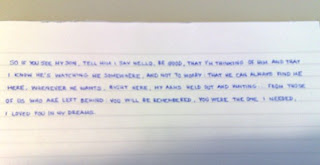 SO IF YOU SEE MY SON, TELL HIM I SAY HELLO, BE GOOD, THAT I'M THINKING OF HIM AND THAT
I KNOW HE'S WATCHING ME SOMEWHERE, AND NOT TO WORRY. THAT HE CAN ALWAYS FIND ME
HERE, WHENEVER HE WANTS, RIGHT HERE, MY ARMS HELD OUT AND WAITING. FROM THOSE
OF US WHO ARE LEFT BEHIND: YOU WILL BE REMEMBERED, YOU WERE THE ONE I NEEDED,
I LOVED YOU IN MY DREAMS.